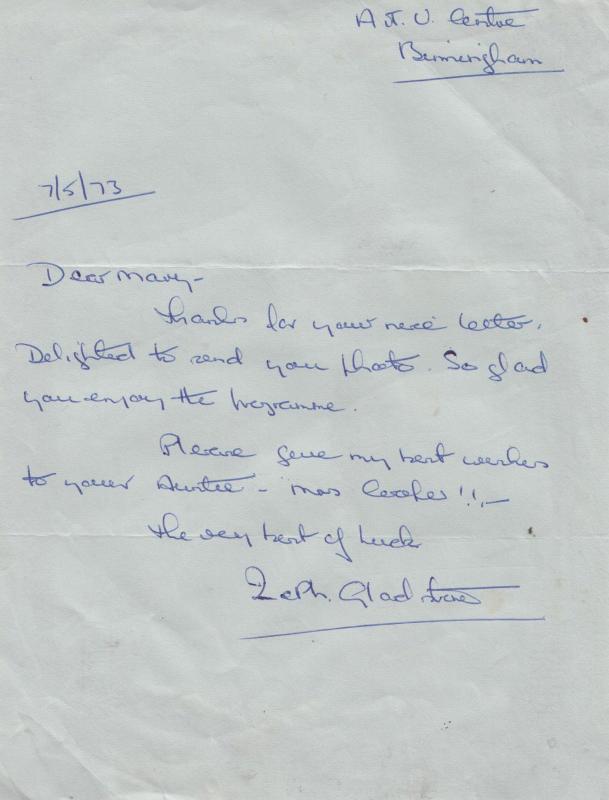 A.T.V. Centre
Birmingham
7/5/73
Dear Mary -
Thanks for your nice letter.
Delighted to send you photo. So glad
you enjoy the programme.
Please give my best wishes
to your Auntie - Mrs !! -
The very best of luck
Zeph. Gladstone